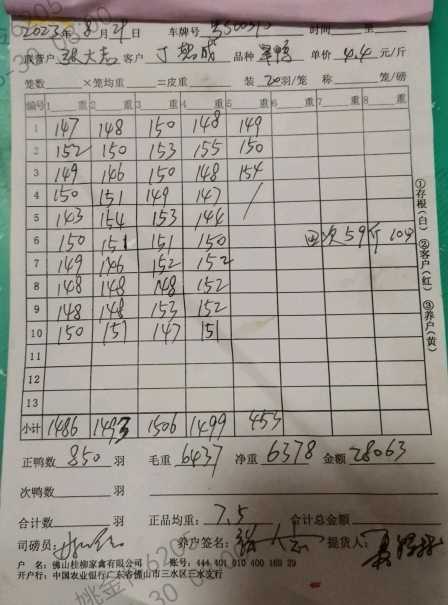 2023年8月29日 车牌号 时间 至
联营户 张大志 客户 丁 成 品种 单鸭 单价 4.4 元/斤
笼数 ×笼均重 =皮重 装 20羽/笼 称 笼/磅
编号 1 重 2 重 3 重 4 重 5 重 6 重 7 重 8 重
1 147 148 150 148 149
2 152 150 153 155 150
3 149 146 150 148 154
4 150 151 149 147 /
5 143 154 153 144
6 150 151 151 150 次59斤 10只
7 149 146 152 152
8 148 148 148 152
9 148 148 153 152
10 150 151 147 151
11
12
13
小计 1486 1493 1506 1499 453
正鸭数 850 羽 毛重 6437 净重 6378 金额 28063
次鸭数 羽
合计数 羽 正品均重: 7.5 合计总金额
司磅员: 养户签名: 张大志 提货人:
户 名: 佛山桂柳家禽有限公司 账号: 444 401 010 400 169 29
开户行: 中国农业银行广东省佛山市三水区三水支行
①存根(白) ②客户(红) ③养户(黄)